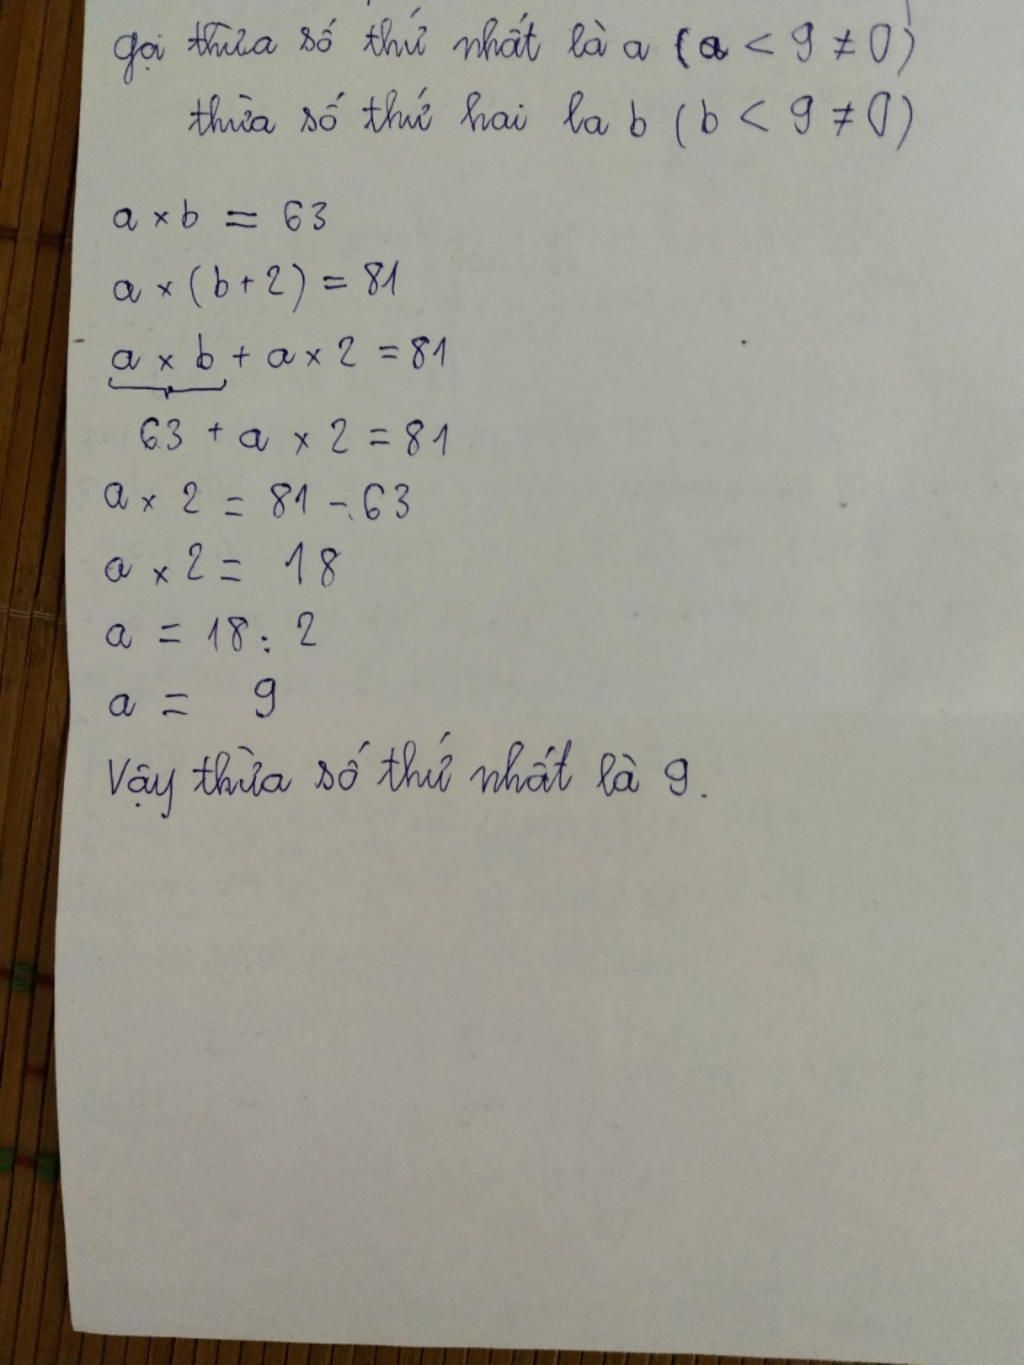 gọi thừa số thứ nhất là a (a < 9 ≠ 0)
thừa số thứ hai la b (b < 9 ≠ 0)
a × b = 63
a × (b + 2) = 81
a × b + a × 2 = 81
63 + a × 2 = 81
a × 2 = 81 - 63
a × 2 = 18
a = 18 : 2
a = 9
Vậy thừa số thứ nhất là 9.